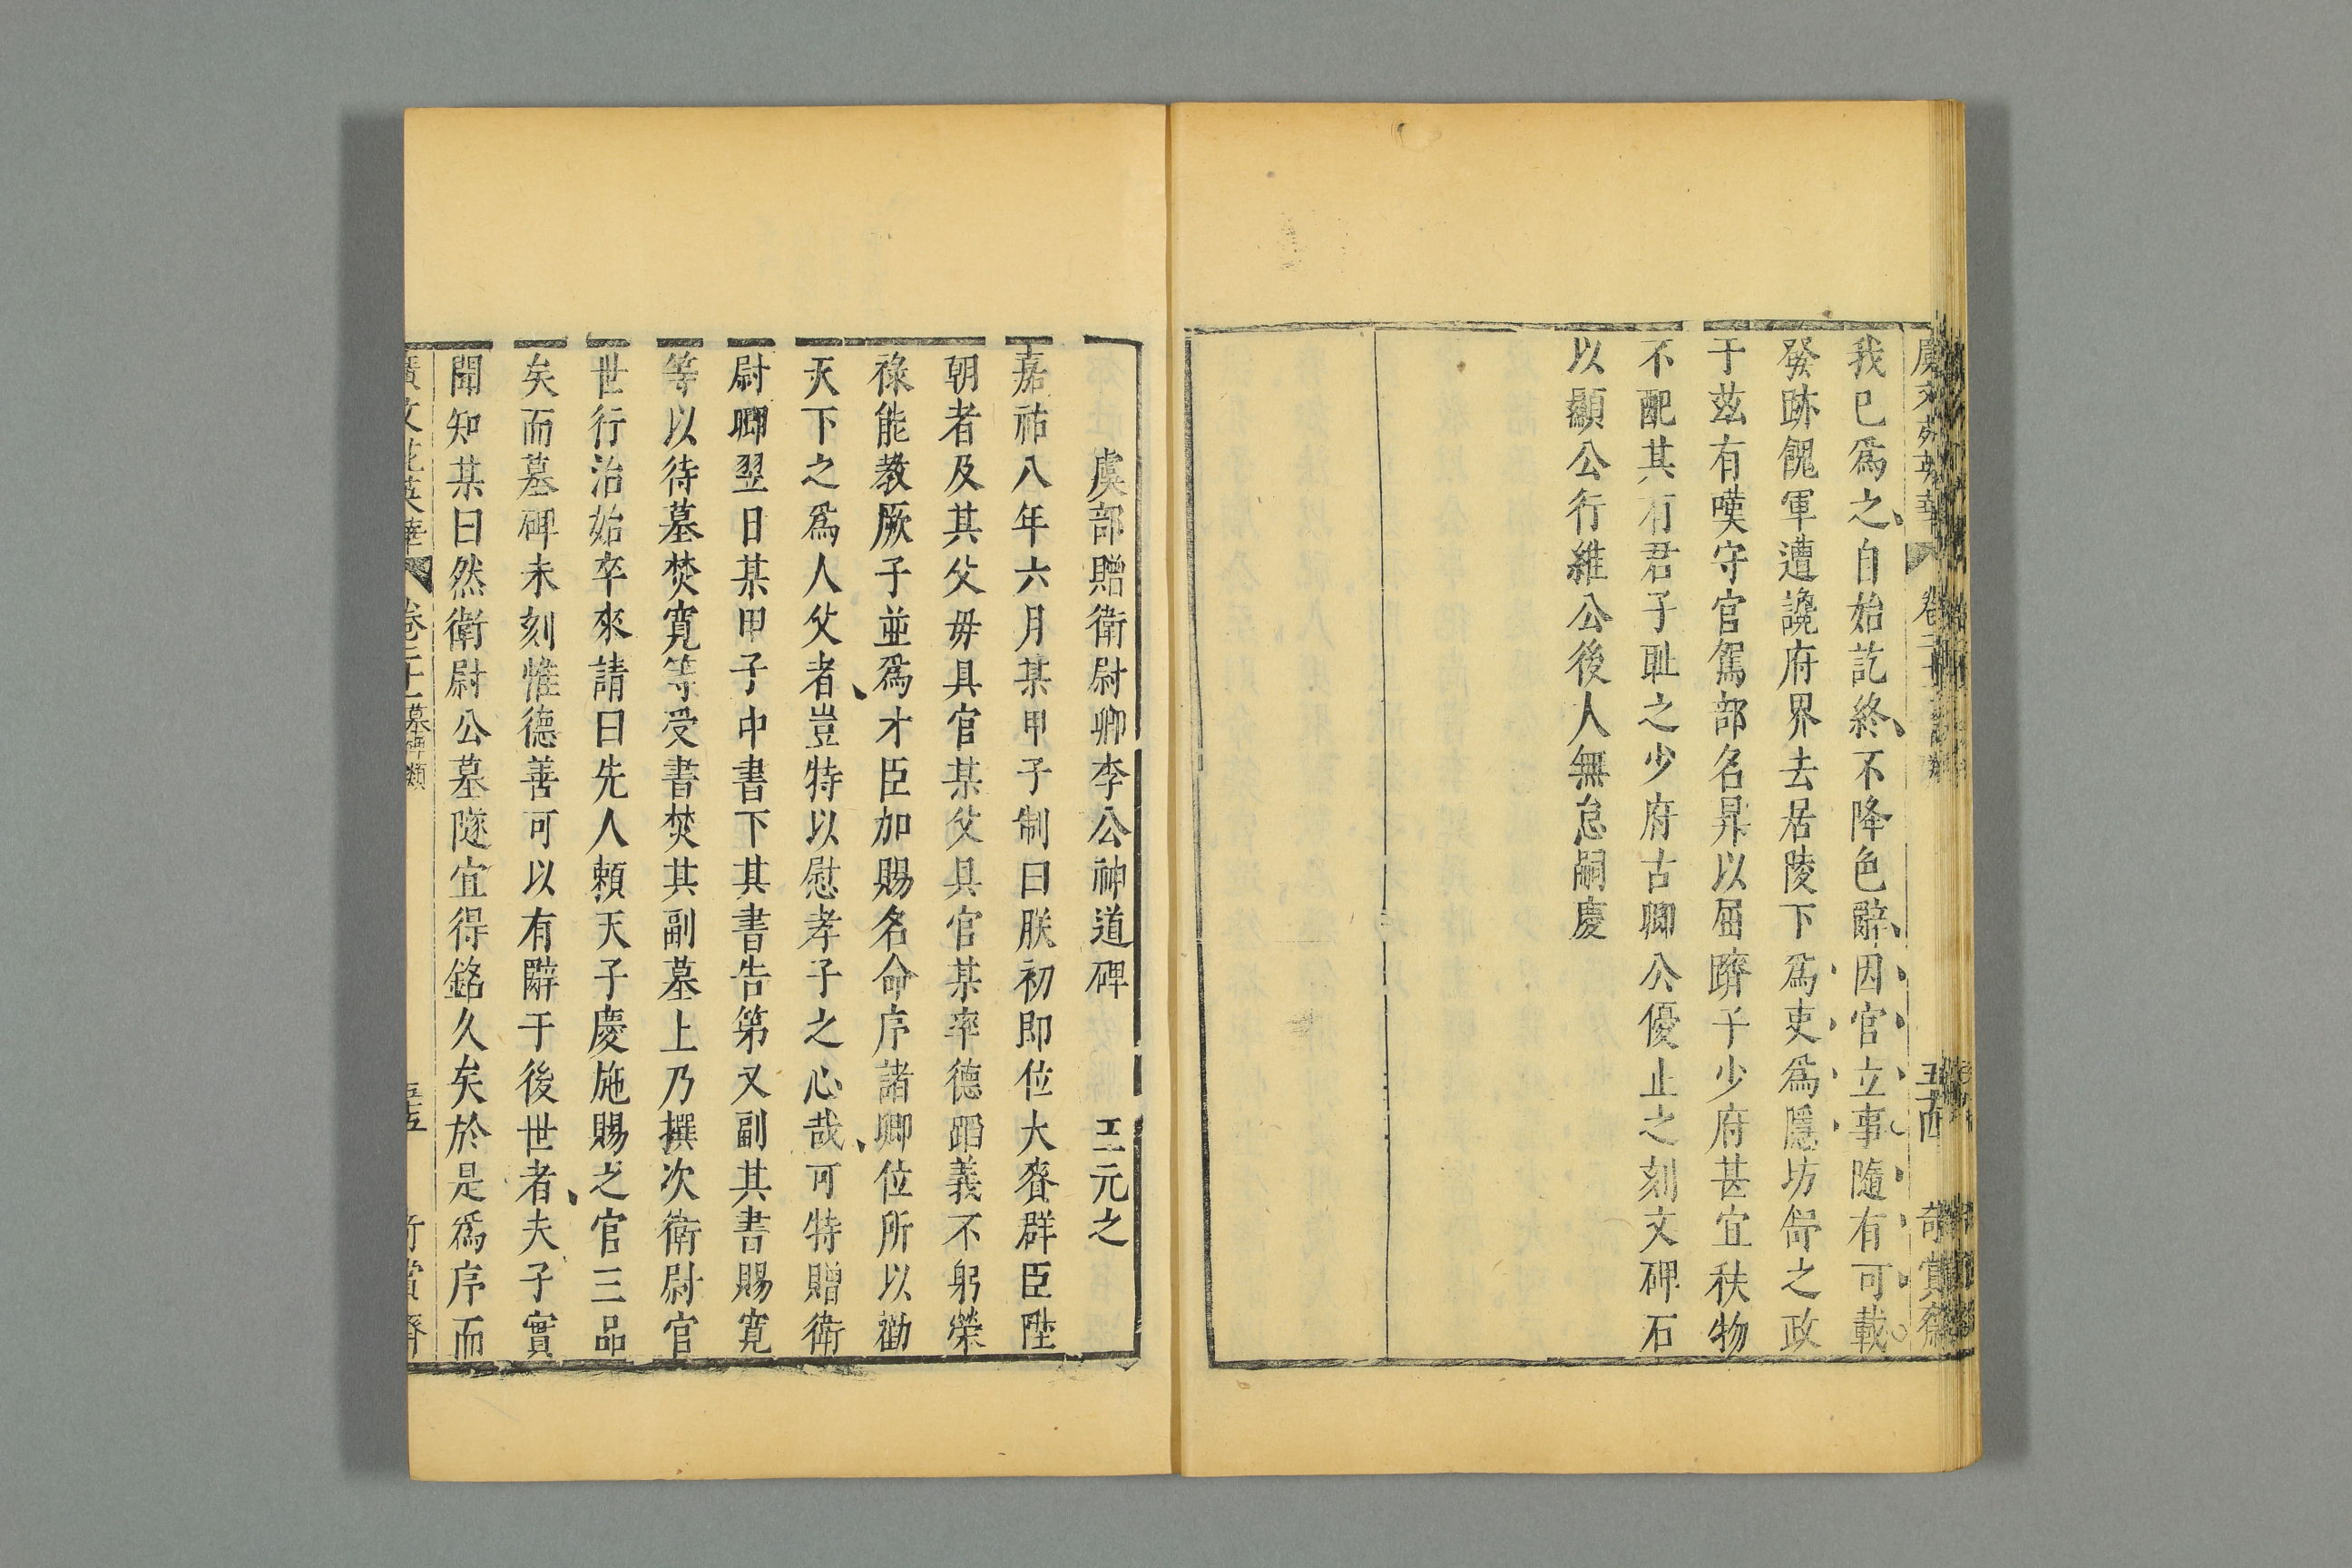 我已爲之自始訖終不降色辭因官立事隨有可載
發跡餽軍遭讒府界去居陵下爲吏爲隱坊部之政
于茲有嘆守官駕部名昇以屈躋于少府甚宜秩物
不配其有君子恥之少府古卿公優止之刻文碑石
以顯公行維公後人無怠嗣慶
虞部贈衛尉卿李公神道碑 王元之
嘉祐八年六月某甲子制曰朕初即位大賚群臣陞
朝者及其父毋具官某父具官某率德蹈義不躬榮
祿能教厥子並爲才臣加賜名命序諸卿位所以勸
天下之爲人父者豈特以慰孝子之心哉可特贈衛
尉卿翌日某甲子中書下其書告第又副其書賜寛
等以待墓焚寛等受書焚其副墓上乃撰次衛尉官
世行治始卒來請曰先人賴天子慶施賜之官三品
矣而墓碑未刻惟德善可以有辭于後世者夫子實
聞知某曰然衛尉公墓隧宜得銘久矣於是爲序而
廣文苑英華 卷二十 墓碑類